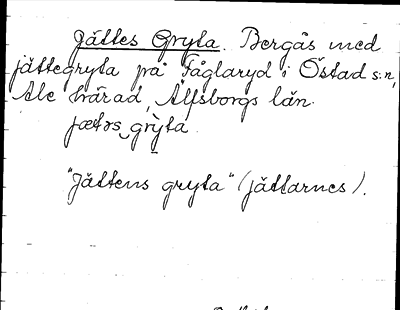 Jättes Gryta. Bergås med
jättegryta på Fåglaryd i Östad s:n,
Ale härad, Älfsborgs län.
jætǝs grỳta
"Jättens gryta" (jättarnes).